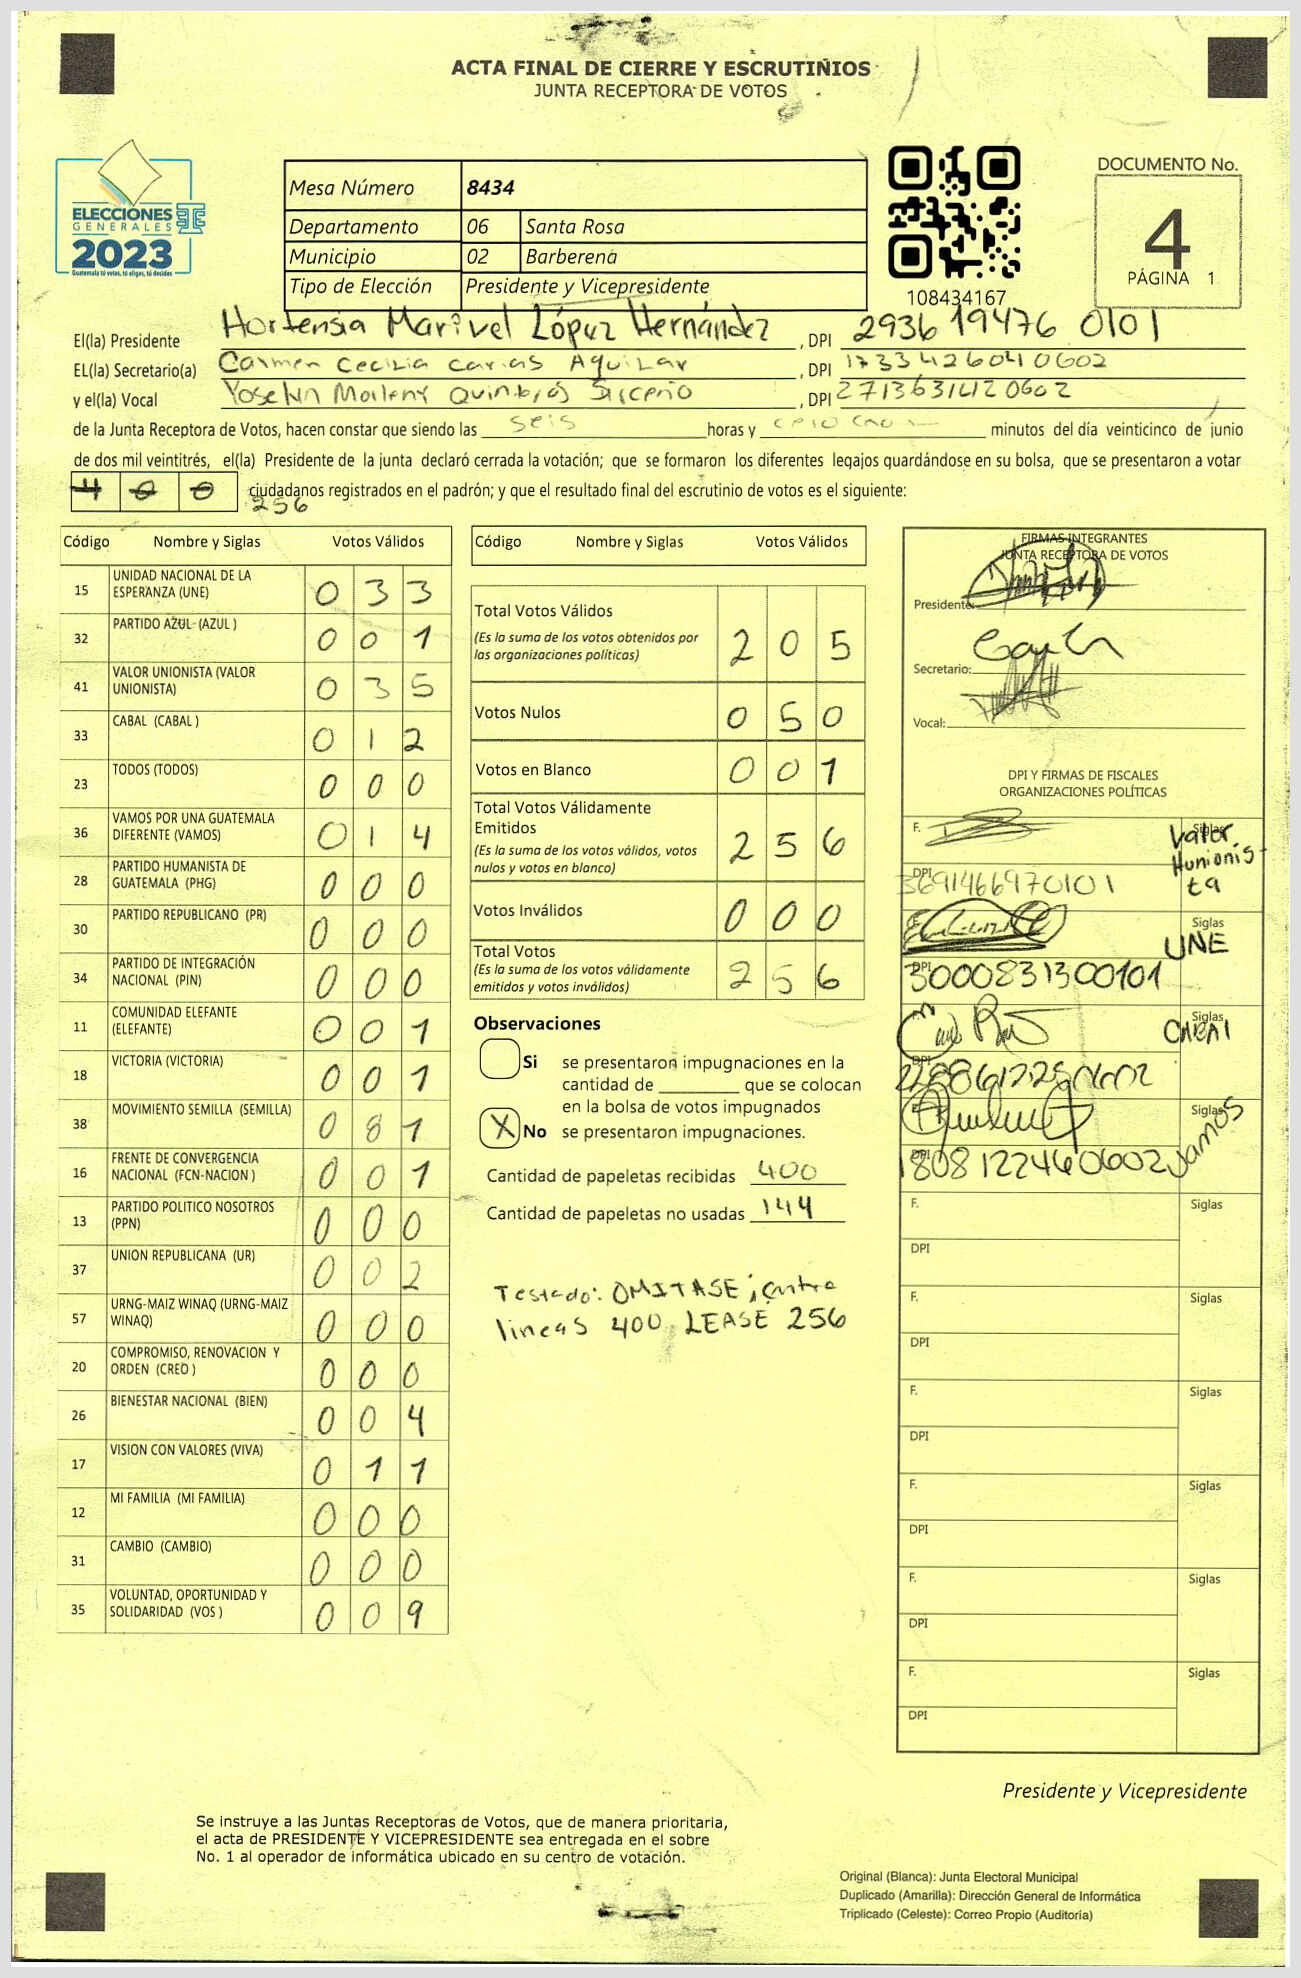 ACTA FINAL DE CIERRE Y ESCRUTINIOS
JUNTA RECEPTORA DE VOTOS
ELECCIONES
GENERALES
2023
Guatemala tú votas, tú eliges, tú decides
Mesa Número 8434
Departamento 06 Santa Rosa
Municipio 02 Barberena
Tipo de Elección Presidente y Vicepresidente
108434167
DOCUMENTO No.
4
PÁGINA 1
El(la) Presidente Hortensia Marivel López Hernández, DPI 2936 19476 0101
EL(la) Secretario(a) Carmen Cecilia Carias Aguilar, DPI 1733426040602
y el(la) Vocal Yoselin Marleny Quinteros, DPI 2713631420602
de la Junta Receptora de Votos, hacen constar que siendo las seis horas y minutos del día veinticinco de junio
de dos mil veintitrés, el(la) Presidente de la junta declaró cerrada la votación; que se formaron los diferentes legajos guardándose en su bolsa, que se presentaron a votar
400 ciudadanos registrados en el padrón; y que el resultado final del escrutinio de votos es el siguiente:
256
Código Nombre y Siglas Votos Válidos
15 UNIDAD NACIONAL DE LA ESPERANZA (UNE) 0 3 3
32 PARTIDO AZUL (AZUL ) 0 0 1
41 VALOR UNIONISTA (VALOR UNIONISTA) 0 3 5
33 CABAL (CABAL ) 0 1 2
23 TODOS (TODOS) 0 0 0
36 VAMOS POR UNA GUATEMALA DIFERENTE (VAMOS) 0 1 4
28 PARTIDO HUMANISTA DE GUATEMALA (PHG) 0 0 0
30 PARTIDO REPUBLICANO (PR) 0 0 0
34 PARTIDO DE INTEGRACIÓN NACIONAL (PIN) 0 0 0
11 COMUNIDAD ELEFANTE (ELEFANTE) 0 0 1
18 VICTORIA (VICTORIA) 0 0 1
38 MOVIMIENTO SEMILLA (SEMILLA) 0 8 1
16 FRENTE DE CONVERGENCIA NACIONAL (FCN-NACION ) 0 0 1
13 PARTIDO POLITICO NOSOTROS (PPN) 0 0 0
37 UNION REPUBLICANA (UR) 0 0 2
57 URNG-MAIZ WINAQ (URNG-MAIZ WINAQ) 0 0 0
20 COMPROMISO, RENOVACION Y ORDEN (CREO ) 0 0 0
26 BIENESTAR NACIONAL (BIEN) 0 0 4
17 VISION CON VALORES (VIVA) 0 1 1
12 MI FAMILIA (MI FAMILIA) 0 0 0
31 CAMBIO (CAMBIO) 0 0 0
35 VOLUNTAD, OPORTUNIDAD Y SOLIDARIDAD (VOS ) 0 0 9
Código Nombre y Siglas Votos Válidos
Total Votos Válidos 2 0 5
(Es la suma de los votos obtenidos por
las organizaciones políticas)
Votos Nulos 0 5 0
Votos en Blanco 0 0 1
Total Votos Válidamente
Emitidos 2 5 6
(Es la suma de los votos válidos, votos
nulos y votos en blanco)
Votos Inválidos 0 0 0
Total Votos 2 5 6
(Es la suma de los votos válidamente
emitidos y votos inválidos)
Observaciones
Si se presentaron impugnaciones en la
cantidad de ________ que se colocan
en la bolsa de votos impugnados
X No se presentaron impugnaciones.
Cantidad de papeletas recibidas 400
Cantidad de papeletas no usadas 144
Testado: OMITASE; entre
lineas 400. LEASE 256
FIRMAS INTEGRANTES
JUNTA RECEPTORA DE VOTOS
Presidente:
Secretario:
Vocal:
DPI Y FIRMAS DE FISCALES
ORGANIZACIONES POLÍTICAS
F. Siglas Valor Hunionista
DPI 3691466970101
F. Siglas UNE
DPI 3000831300101
F. Siglas CABAL
DPI
F. Siglas Vamos
DPI 1808122460602
F. Siglas
DPI
F. Siglas
DPI
F. Siglas
DPI
F. Siglas
DPI
F. Siglas
DPI
F. Siglas
DPI
Presidente y Vicepresidente
Se instruye a las Juntas Receptoras de Votos, que de manera prioritaria,
el acta de PRESIDENTE Y VICEPRESIDENTE sea entregada en el sobre
No. 1 al operador de informática ubicado en su centro de votación.
Original (Blanca): Junta Electoral Municipal
Duplicado (Amarilla): Dirección General de Informática
Triplicado (Celeste): Correo Propio (Auditoría)